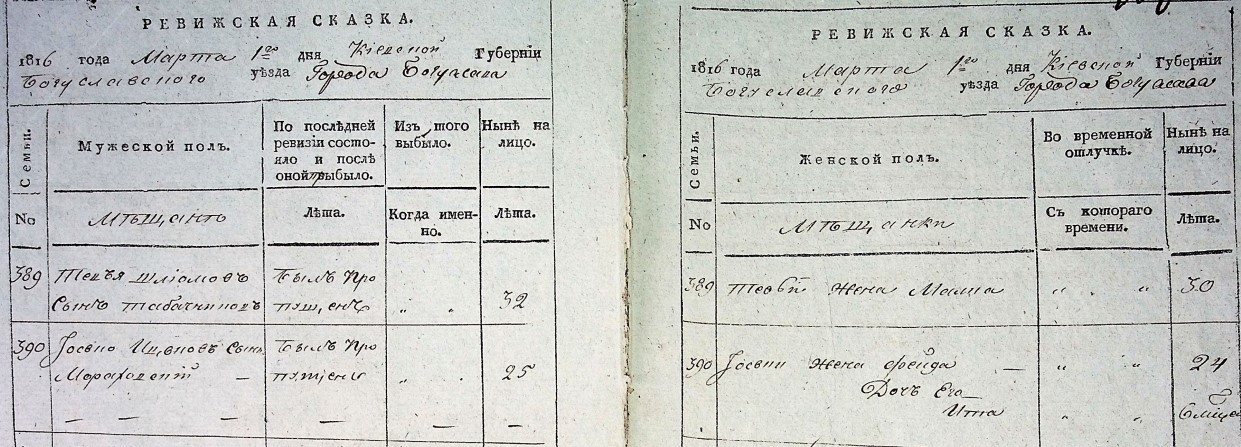 РЕВИЖСКАЯ СКАЗКА.
1816 года Марта 1го дня Кіевской Губерніи
Богуславского уѣзда Города Богуслава
Семьи.
Мужеской полъ.
По послѣдней
ревизіи состо-
яло и послѣ
оной прыбыло.
Изъ того
выбыло.
Нынѣ на
лицо.
No
Мѣщанъ
Лѣта.
Когда имен-
но.
Лѣта.
389
Шліомовъ
былъ про
Сынъ Табачниковъ
пущенъ
„ „
32
390
Іосипо Сынъ
былъ про
—
пущенъ
„ „
25
— — — — — —
РЕВИЖСКАЯ СКАЗКА.
1816 года Марта 1го дня Кіевской Губерніи
Богуславского уѣзда Города Богуслава
Семьи.
Женской полъ.
Во временной
отлучкѣ.
Нынѣ на
лицо.
No
Мѣщанки
Съ котораго
времени.
Лѣта.
389
Жена Малша
„ „ „
30
390
Жена Фрейда —
„ „
24
Дочь Его
Ита
„ „
6